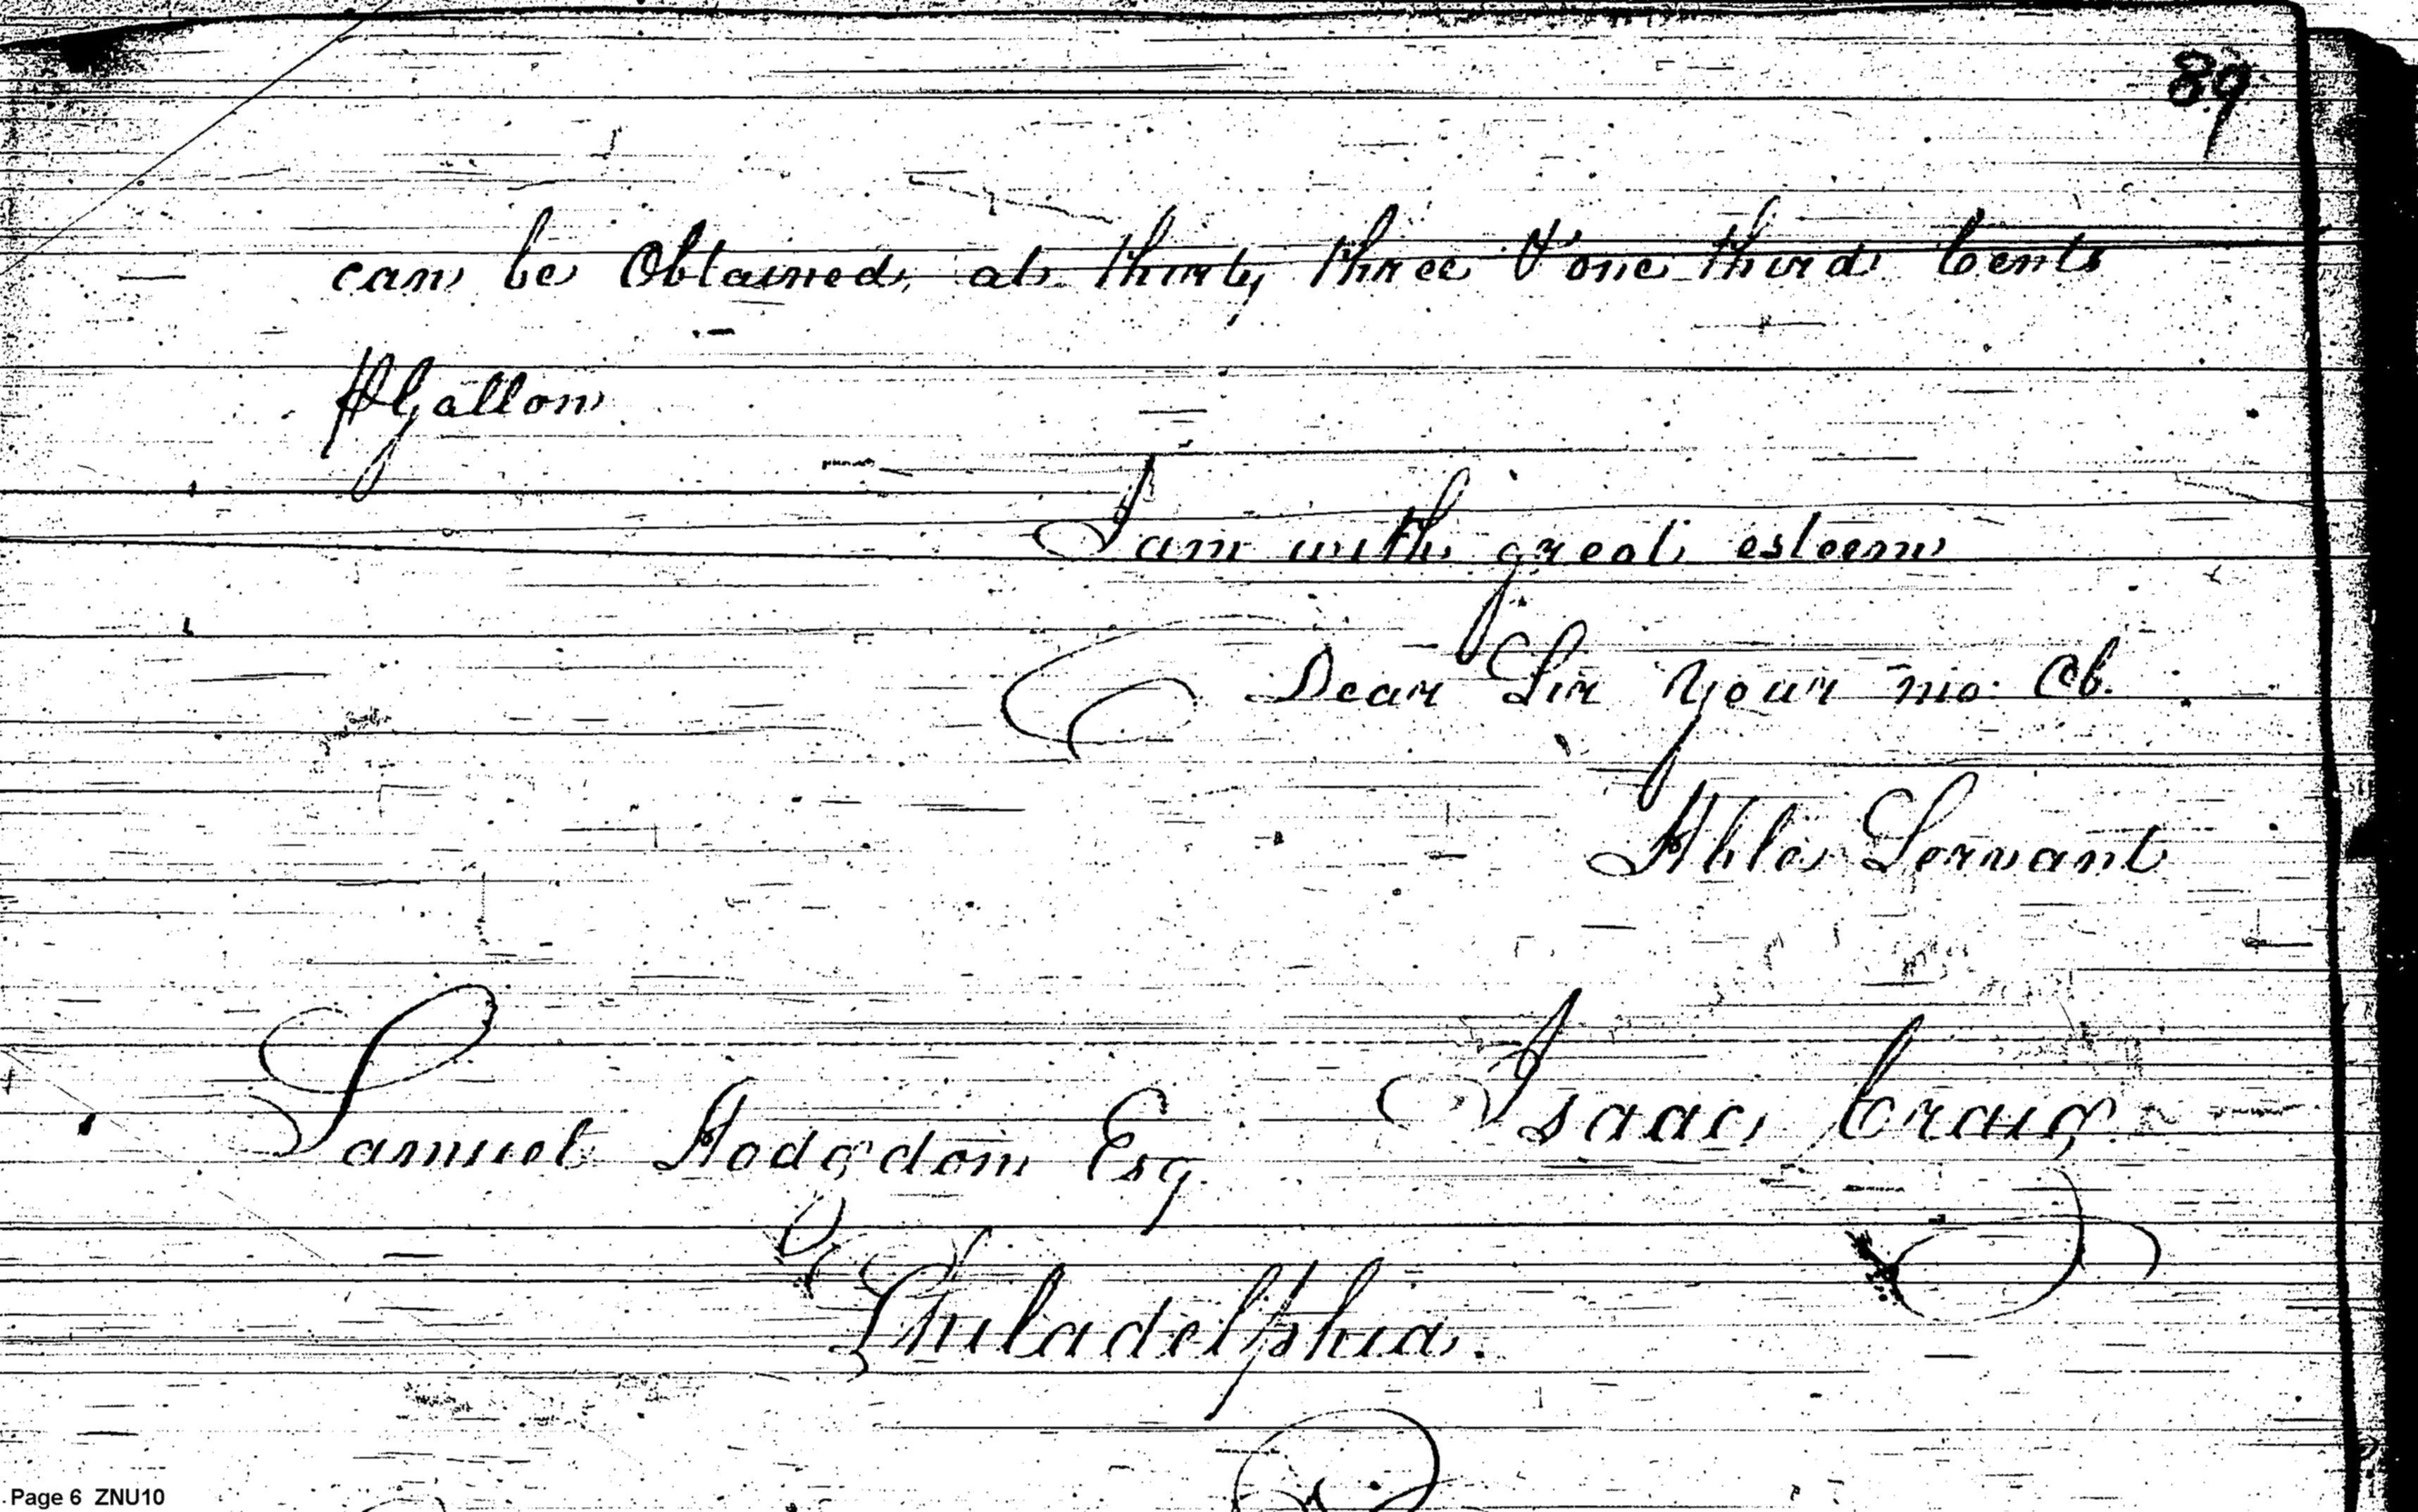 89
can be Obtained, at thirty three & one third Cents
⅌ Gallon
I am with great esteem
Dear Sir Your mo. Ob.
Hble Servant
Isaac Craig
Samuel Hodgdon Esq.
Philadelphia.
Page 6 ZNU10